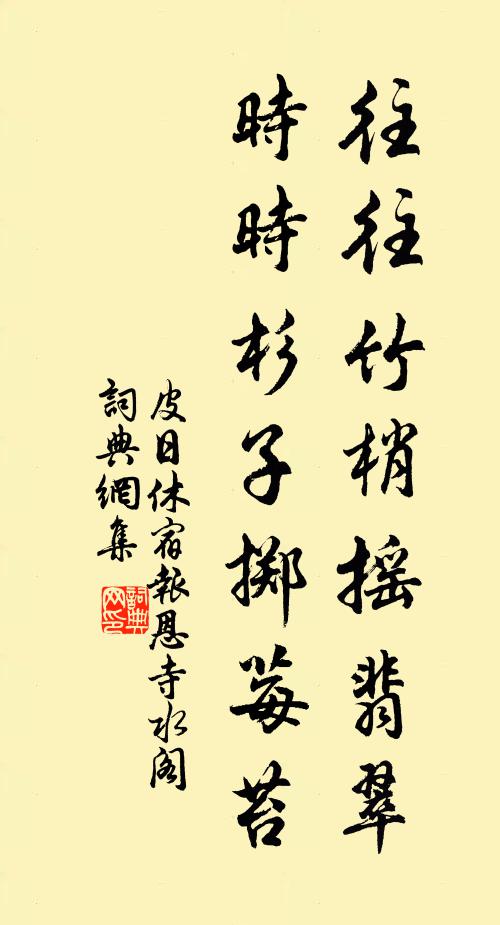 往往竹梢搖翡翠
時時杉子擲莓苔
皮日休宿報恩寺水閣
詞典網集
詞典網印